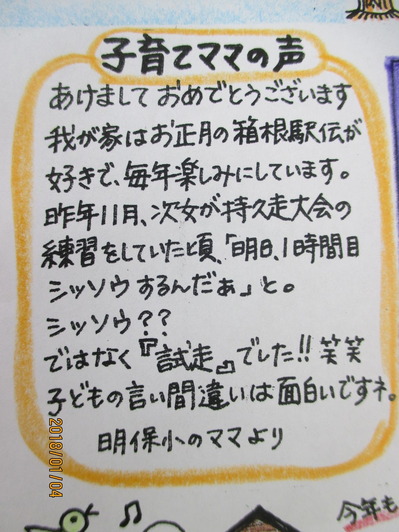 子育てママの声
あけまして おめでとうございます
我が家はお正月の箱根駅伝が
好きで、毎年楽しみにしています。
昨年11月、次女が持久走大会の
練習をしていた頃、「明日、1時間目
シッソウするんだぁ」と。
シッソウ??
ではなく『試走』でした!! 笑笑
子どもの言い間違いは面白いですネ。
明保小のママより
今年も
2018/01/04